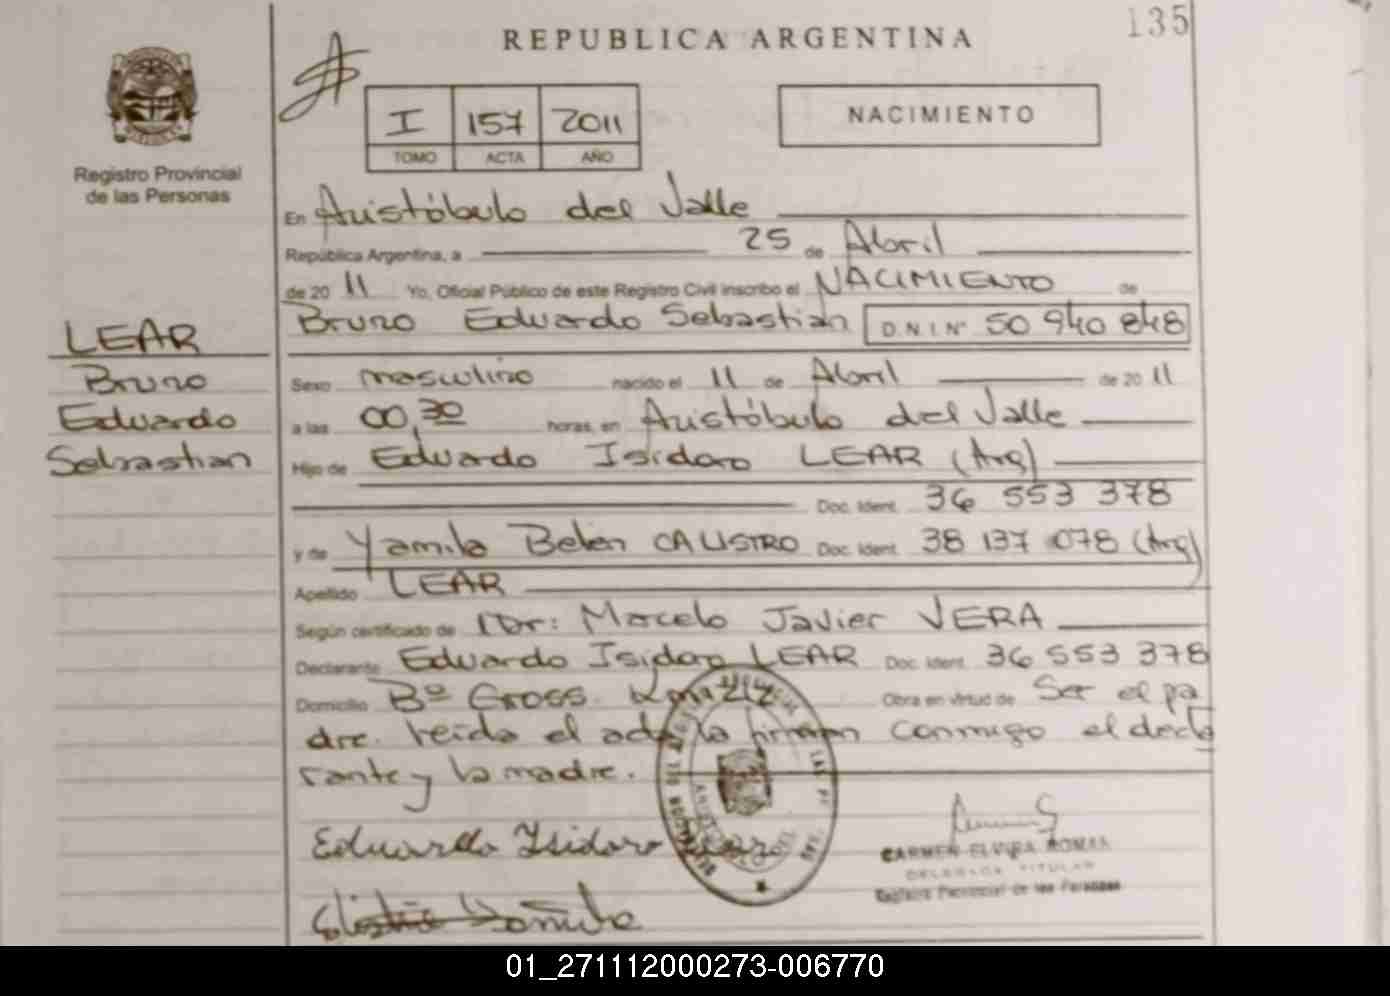 135
REPUBLICA ARGENTINA
Registro Provincial
de las Personas
I 157 2011
TOMO ACTA AÑO
NACIMIENTO
En Aristóbulo del Valle
República Argentina, a 25 de Abril
de 20 11 Yo, Oficial Público de este Registro Civil inscribo el NACIMIENTO de
Bruno Eduardo Sebastian D.N.I. Nº 50 940 848
LEAR
Bruno
Eduardo
Sebastian
Sexo masculino nacido el 11 de Abril de 20 11
a las 00,30 horas, en Aristóbulo del Valle
Hijo de Eduardo Isidoro LEAR (Arg)
Doc. Ident. 36 553 378
y de Yamila Belen CALISTRO Doc. Ident. 38 137 078 (Arg)
Apellido LEAR
Según certificado de Dr: Marcelo Javier VERA
Declarante Eduardo Isidoro LEAR Doc. Ident. 36 553 378
Domicilio Bº Gross. Km Obra en virtud de Ser el pa
dre. leída el acta la firman conmigo el decla
rante y la madre.
Eduardo Isidoro Lear
CARMEN ELVIRA
DELEGADA TITULAR
Registro Provincial de las Personas
01_271112000273-006770